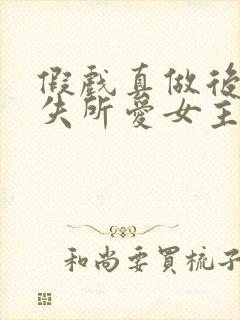 假戲真做後
失所愛女主
和尚要買梳子